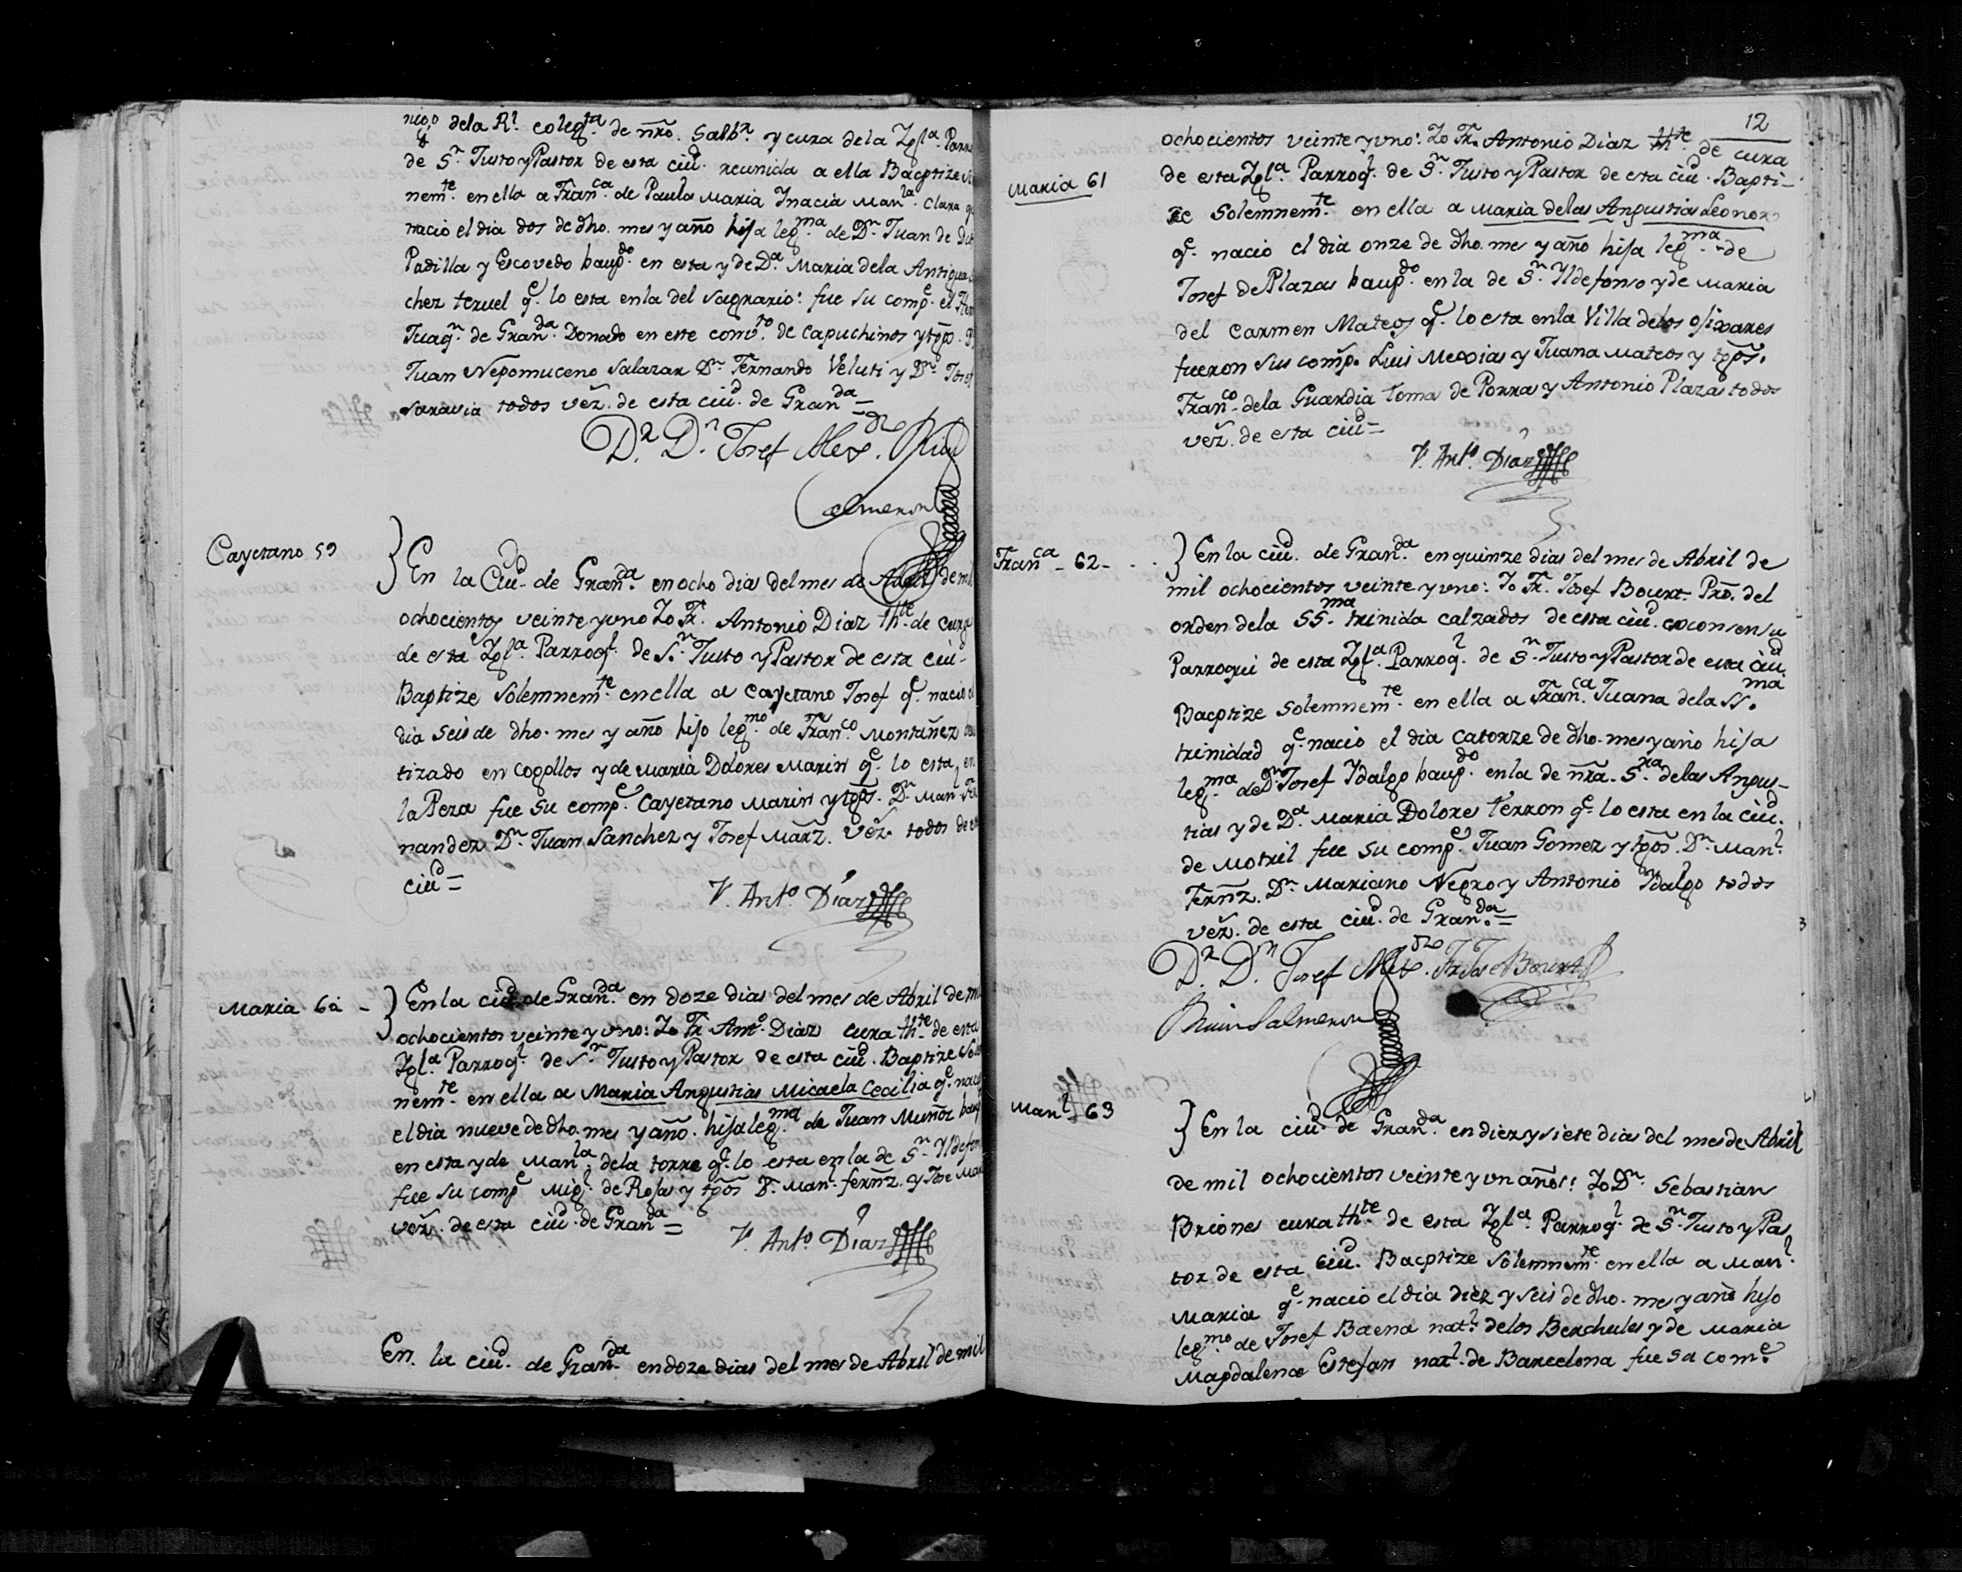 dela Rl. colegta. de nro. Salbr. y cura dela Ygla. Parro
de Sn. Justo y Pastor de esta ciud. reunida a ella Bacptize So
nemte. en ella a Franca. de Paula Maria Ynacia Manla. Clara q
nacio el dia dos de dho. mes y año hija legma. de Dn. Juan de Di
Padilla y Escovedo baupdo. en esta y de Da. Maria dela Antigua
chez teruel qe. lo esta enla del Sagrario: fue su compe. el He
Juaqn. de Granda. Donado en este convto. de Capuchinos y tgos.
Juan Nepomuceno Salazar Dn. Fernando Veluti y Dn. Josef
Saravia todos vez. de esta ciud. de Granda=
Dr. Dn. Josef Alexdro. Ruiz
Salmeron
Cayetano 59
En la Ciud. de Granda. en ocho dias del mes de Abril de mil
ochocientos veinte y uno Yo Fr. Antonio Diaz thte. de cura
de esta Ygla. Parroql. de Sn. Justo y Pastor de esta ciu-
Baptize Solemnemte. en ella a Cayetano Josef qe. nacio el
dia seis de dho. mes y año hijo legmo. de Franco. Montañez bau
tizado en Cogollos y de Maria Dolores Marin qe. lo esta en
la Peza fue su compe. Cayetano Marin y tgos. Dn. Manl. Fer
nandez Dn. Juan Sanchez y Josef Marz. vez. todos de esta
ciud=
Fr. Anto. Diaz
Maria 60 -
En la ciud. de Granda. en doze dias del mes de Abril de mil
ochocientos veinte y uno: Yo Fr. Anto. Diaz cura thte. de esta
Ygla. Parroql. de Sn. Justo y Pastor de esta ciud. Baptize Solem
nemte. en ella a Maria Angustias Micaela Cecilia qe. nacio
el dia nueve de dho. mes y año. hija legma. de Juan Muñoz baup
en esta y de Manla. dela torre qe. lo esta en la de Sn. Yldefon
fue su compe. Migl. de Rojas y tgos Dn. Manl. fernz. y Jose Mar
vez. de esta ciud. de Granda=
Fr. Anto. Diaz
En la ciud. de Granda. en doze dias del mes de Abril de mil
12
Maria 61
ochocientos veinte y uno: Yo Fr. Antonio Diaz thte. de cura
de esta Ygla. Parroql. de Sn. Justo y Pastor de esta ciud. Bapti-
ze Solemnemte. en ella a Maria delas Angustias Leonor
qe. nacio el dia onze de dho. mes y año hija legma. de
Josef de Plazas baupdo. en la de Sn. Yldefonso y de Maria
del Carmen Mateos qe. lo esta enla Villa delos ojixares
fueron sus comps. Luis Mexias y Juana Mateos y tgos.
Franco. dela Guardia toma de Porras y Antonio Plazas todos
vez. de esta ciud=
Fr. Anto. Diaz
Franca - 62 - . .
En la ciud. de Granda. en quinze dias del mes de Abril de
mil ochocientos veinte y uno: Yo Fr. Josef Bourt. Pro. del
orden dela SSma. trinida calzados de esta ciud. exconsensu
Parroqui de esta Ygla. Parroql. de Sn. Justo y Pastor de esta ciud.
Bacptize Solemnemte. en ella a Franca. Juana dela SSma.
trinidad qe. nacio el dia catorze de dho. mes y año hija
legma. de Dn. Josef Ydalgo baupdo. en la de nra. Sra. delas Angus-
tias y de Da. Maria Dolores terron qe. lo esta en la ciud.
de Motril fue su compe. Juan Gomez y tgos. Dn. Manl.
Fernz. Dn. Mariano Negro y Antonio Ydalgo todos
vez. de esta ciud. de Granda.=
Dr. Dn. Josef Alexdro. Fr. Jose Bourt
Ruiz Salmeron
Manl. 63
En la ciud. de Granda. en diez y siete dias del mes de Abril
de mil ochocientos veinte y un años: Yo Dn. Sebastian
Briones cura thte. de esta Ygla. Parroql. de Sn. Justo y Pas
tor de esta ciud. Bacptize Solemnemte. en ella a Manl.
Maria qe. nacio el dia diez y seis de dho. mes y año hijo
legmo. de Josef Baena natl. delos Berchules y de Maria
Magdalena Estefan natl. de Barcelona fue su come.